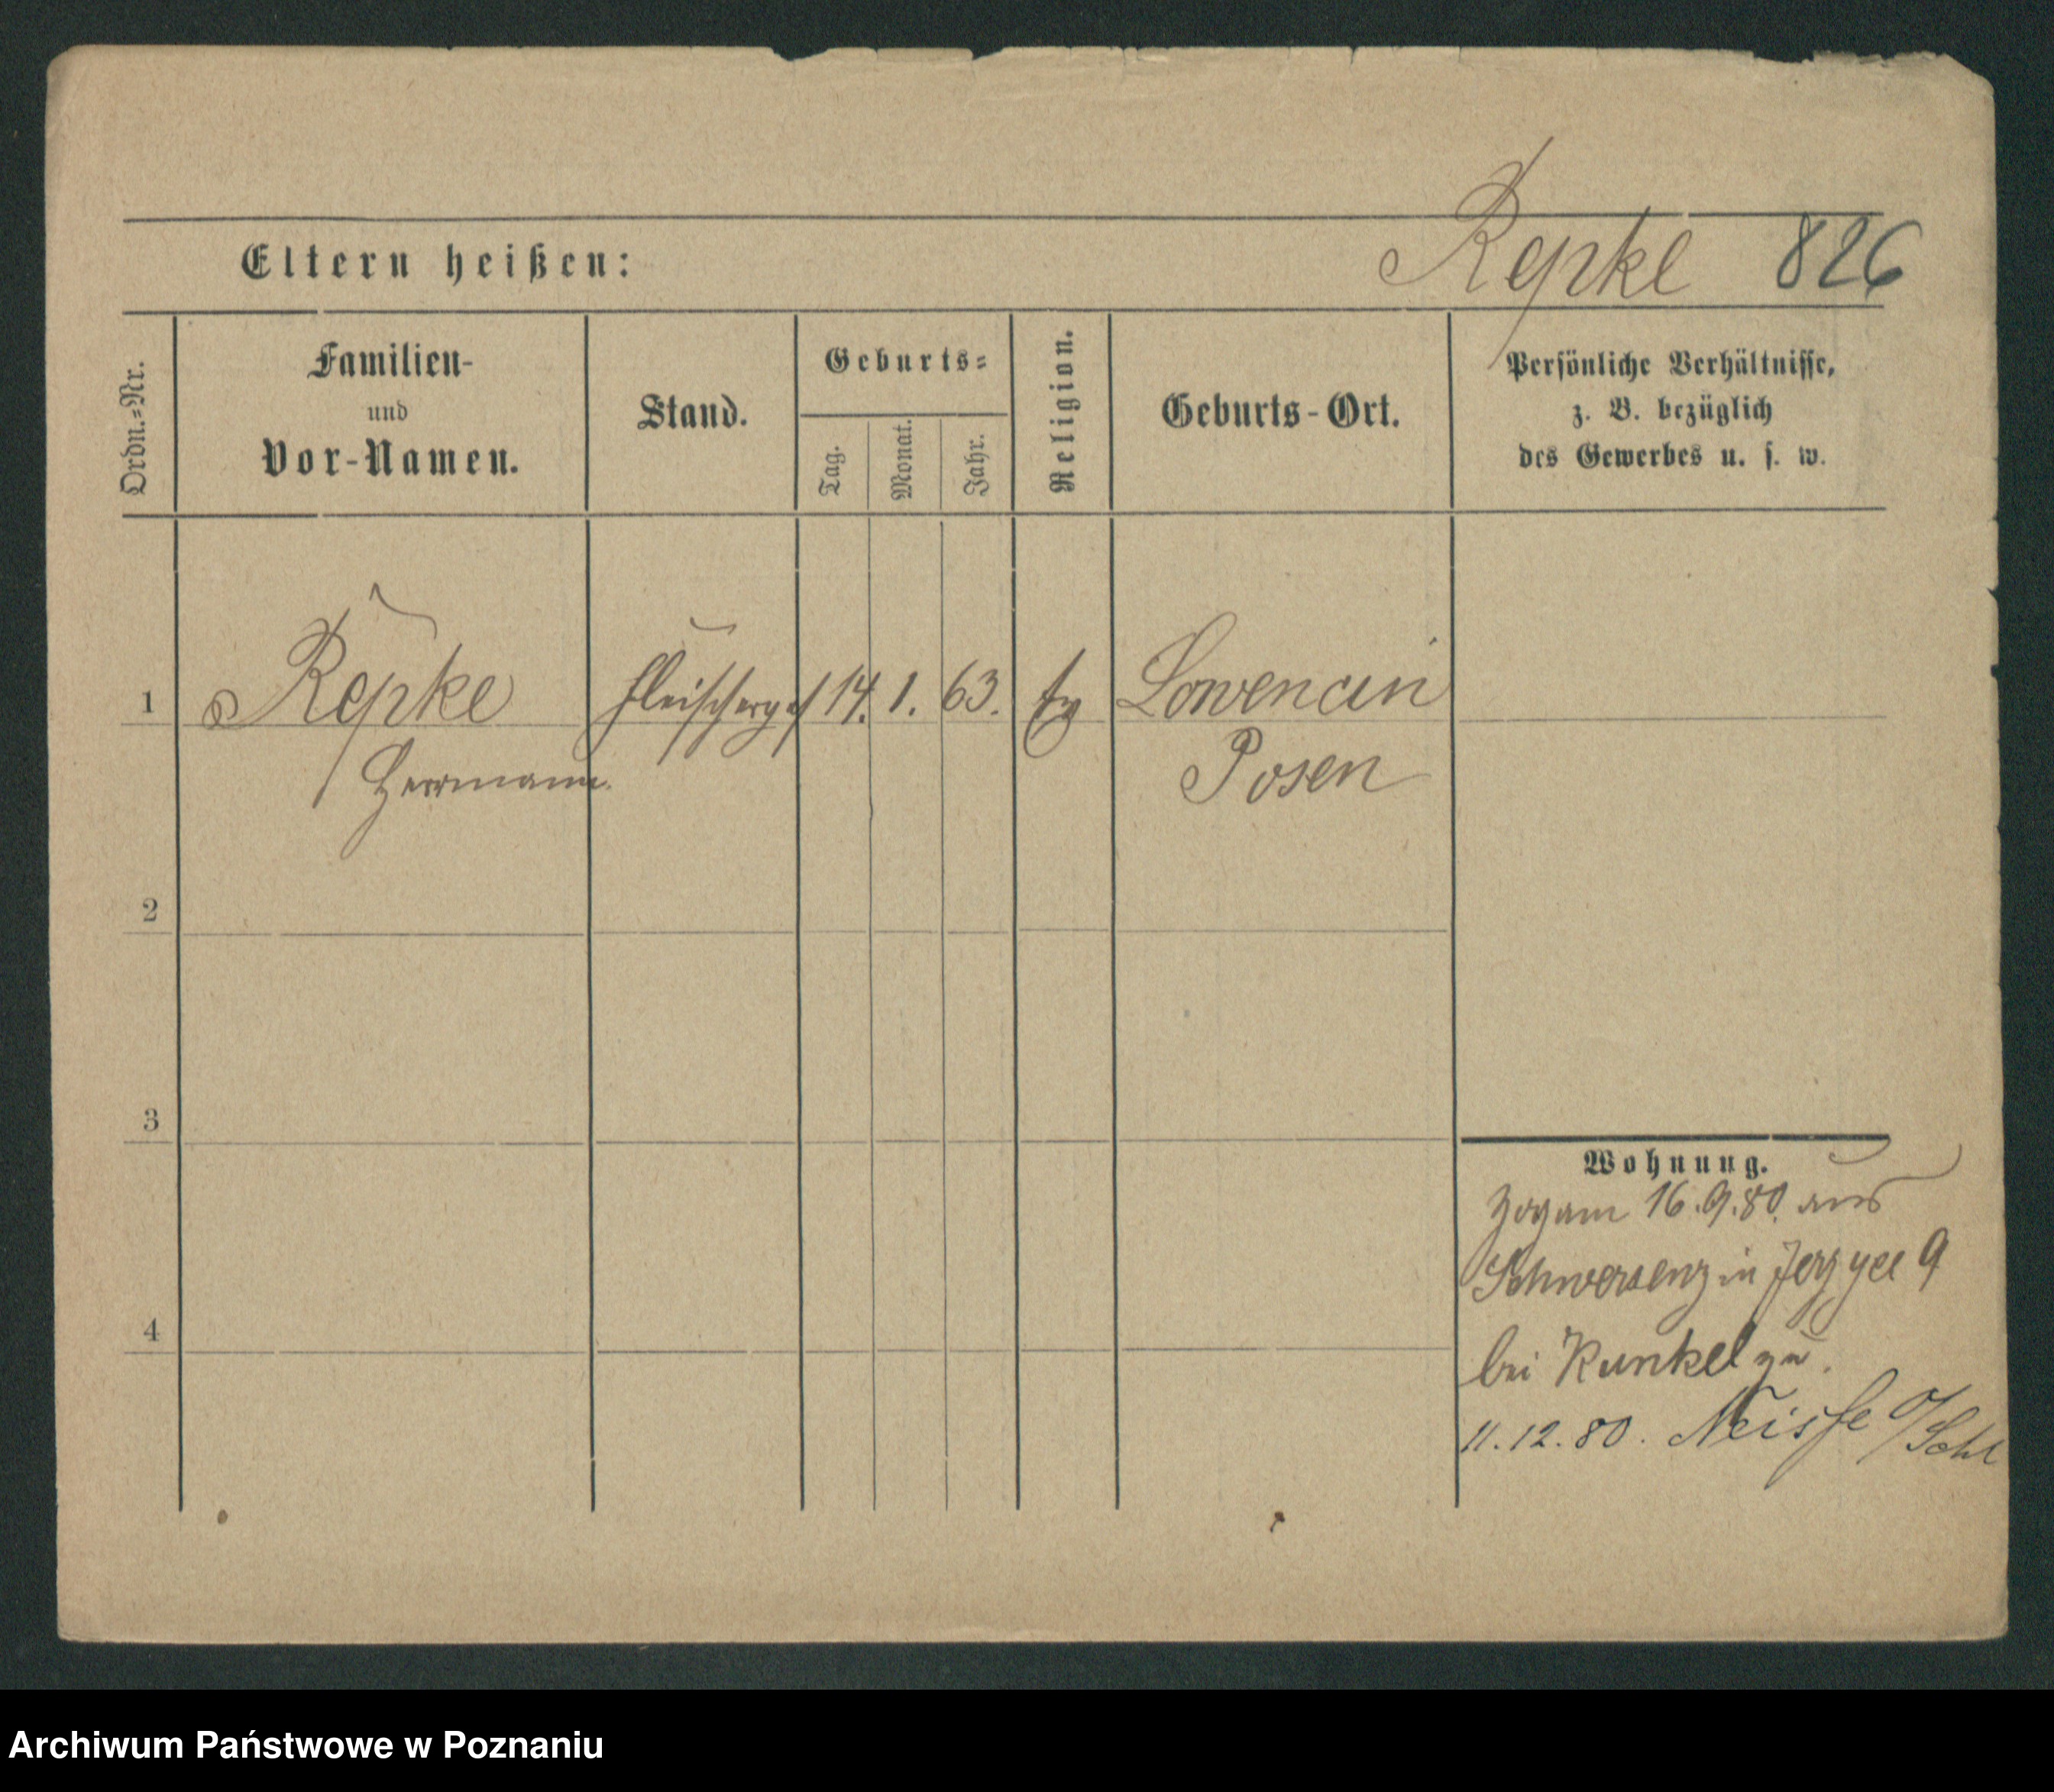 Repke 826
Eltern heißen:
Ordn.=Nr.
Familien-
und
Vor-Namen.
Stand.
Geburts=
Tag.
Monat.
Jahr.
Religion.
Geburts-Ort.
Persönliche Verhältnisse,
z. B. bezüglich
des Gewerbes u. s. w.
1 Repke Fleischerges 14. 1. 63. Ev Lowencin
Herrmann. Posen
2
3
4
Wohnung.
Zog am 16.9.80. aus
Schwersenz in Jerzyce 9
bei Kunkel zu.
11.12.80. Neisse O/Schl
Archiwum Państwowe w Poznaniu